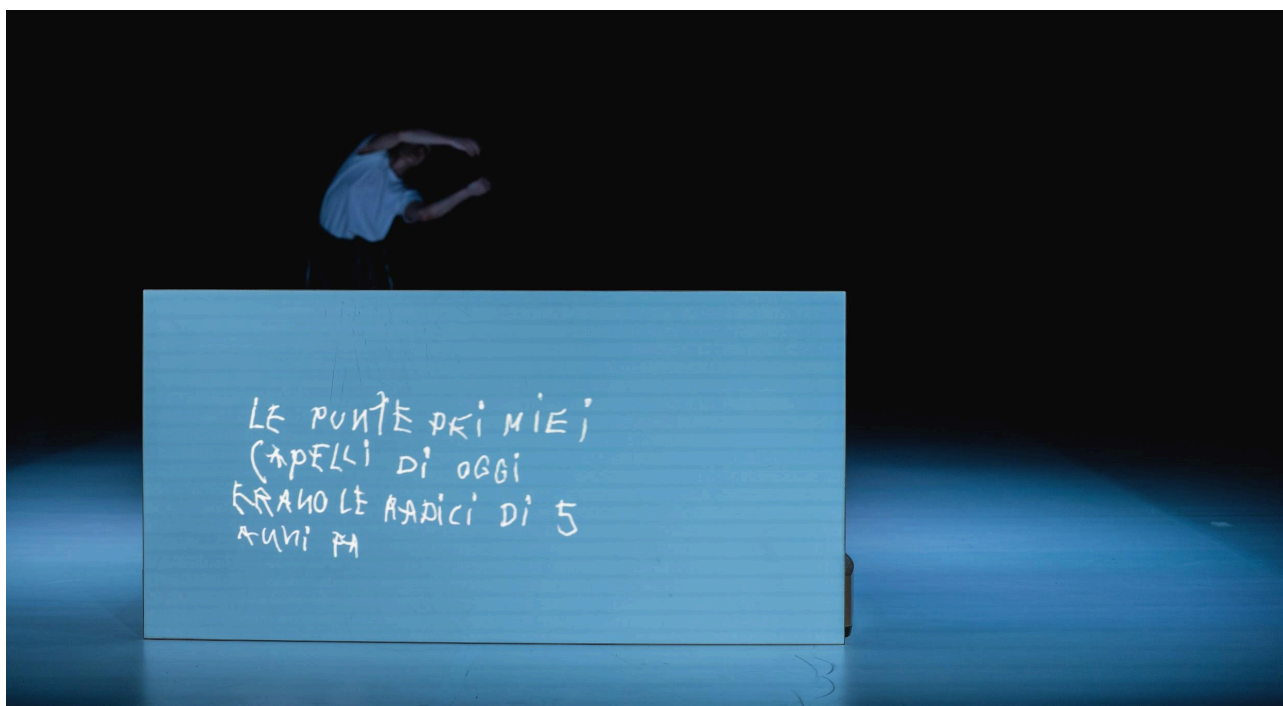 LE PUNTE DEI MIEI
CAPELLI DI OGGI
ERANO LE RADICI DI 5
ANNI FA